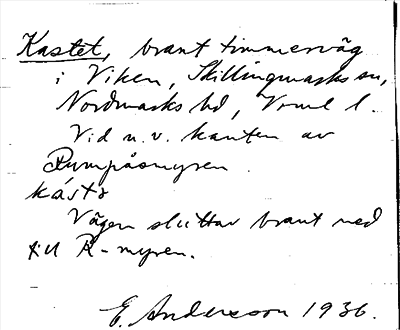 Kastet, brant timmerväg
i Viken, Skillingmarks sn,
Nordmarks hd, Vrml l.
Vid n.v. kanten av
Rumpåsmyren.
kástə
Vägen sluttar brant ned
till R-myren.
E. Andersson 1936.